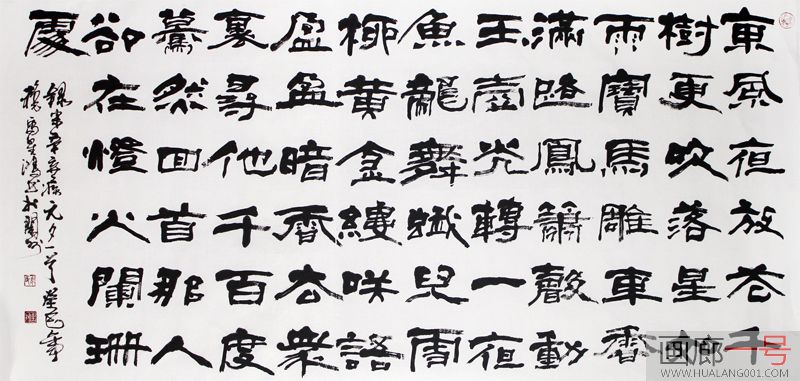 東風夜放花千
樹更吹落星
雨寶馬雕車香
滿路鳳簫聲動
玉壺光轉一夜
魚龍舞蛾兒雪
柳黃金縷咲語
盈盈暗香去衆
裏尋他千百度
驀然回首那人
卻在燈火闌珊
處
元夕一首癸巳年
画廊一号
WWW.HUALANG001.COM